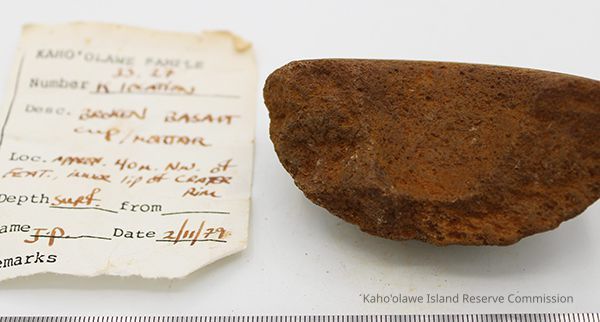 KAHO'OLAWE SAMPLE
33.27
Number K LOCATION
Desc. BROKEN BASALT
CUP/MORTAR
Loc. APPROX. 40M. NW. of
FEAT., inner lip of CRATER
Rim
Depth surf. from
ame J.P. Date 2/11/79
emarks
Kaho'olawe Island Reserve Commission